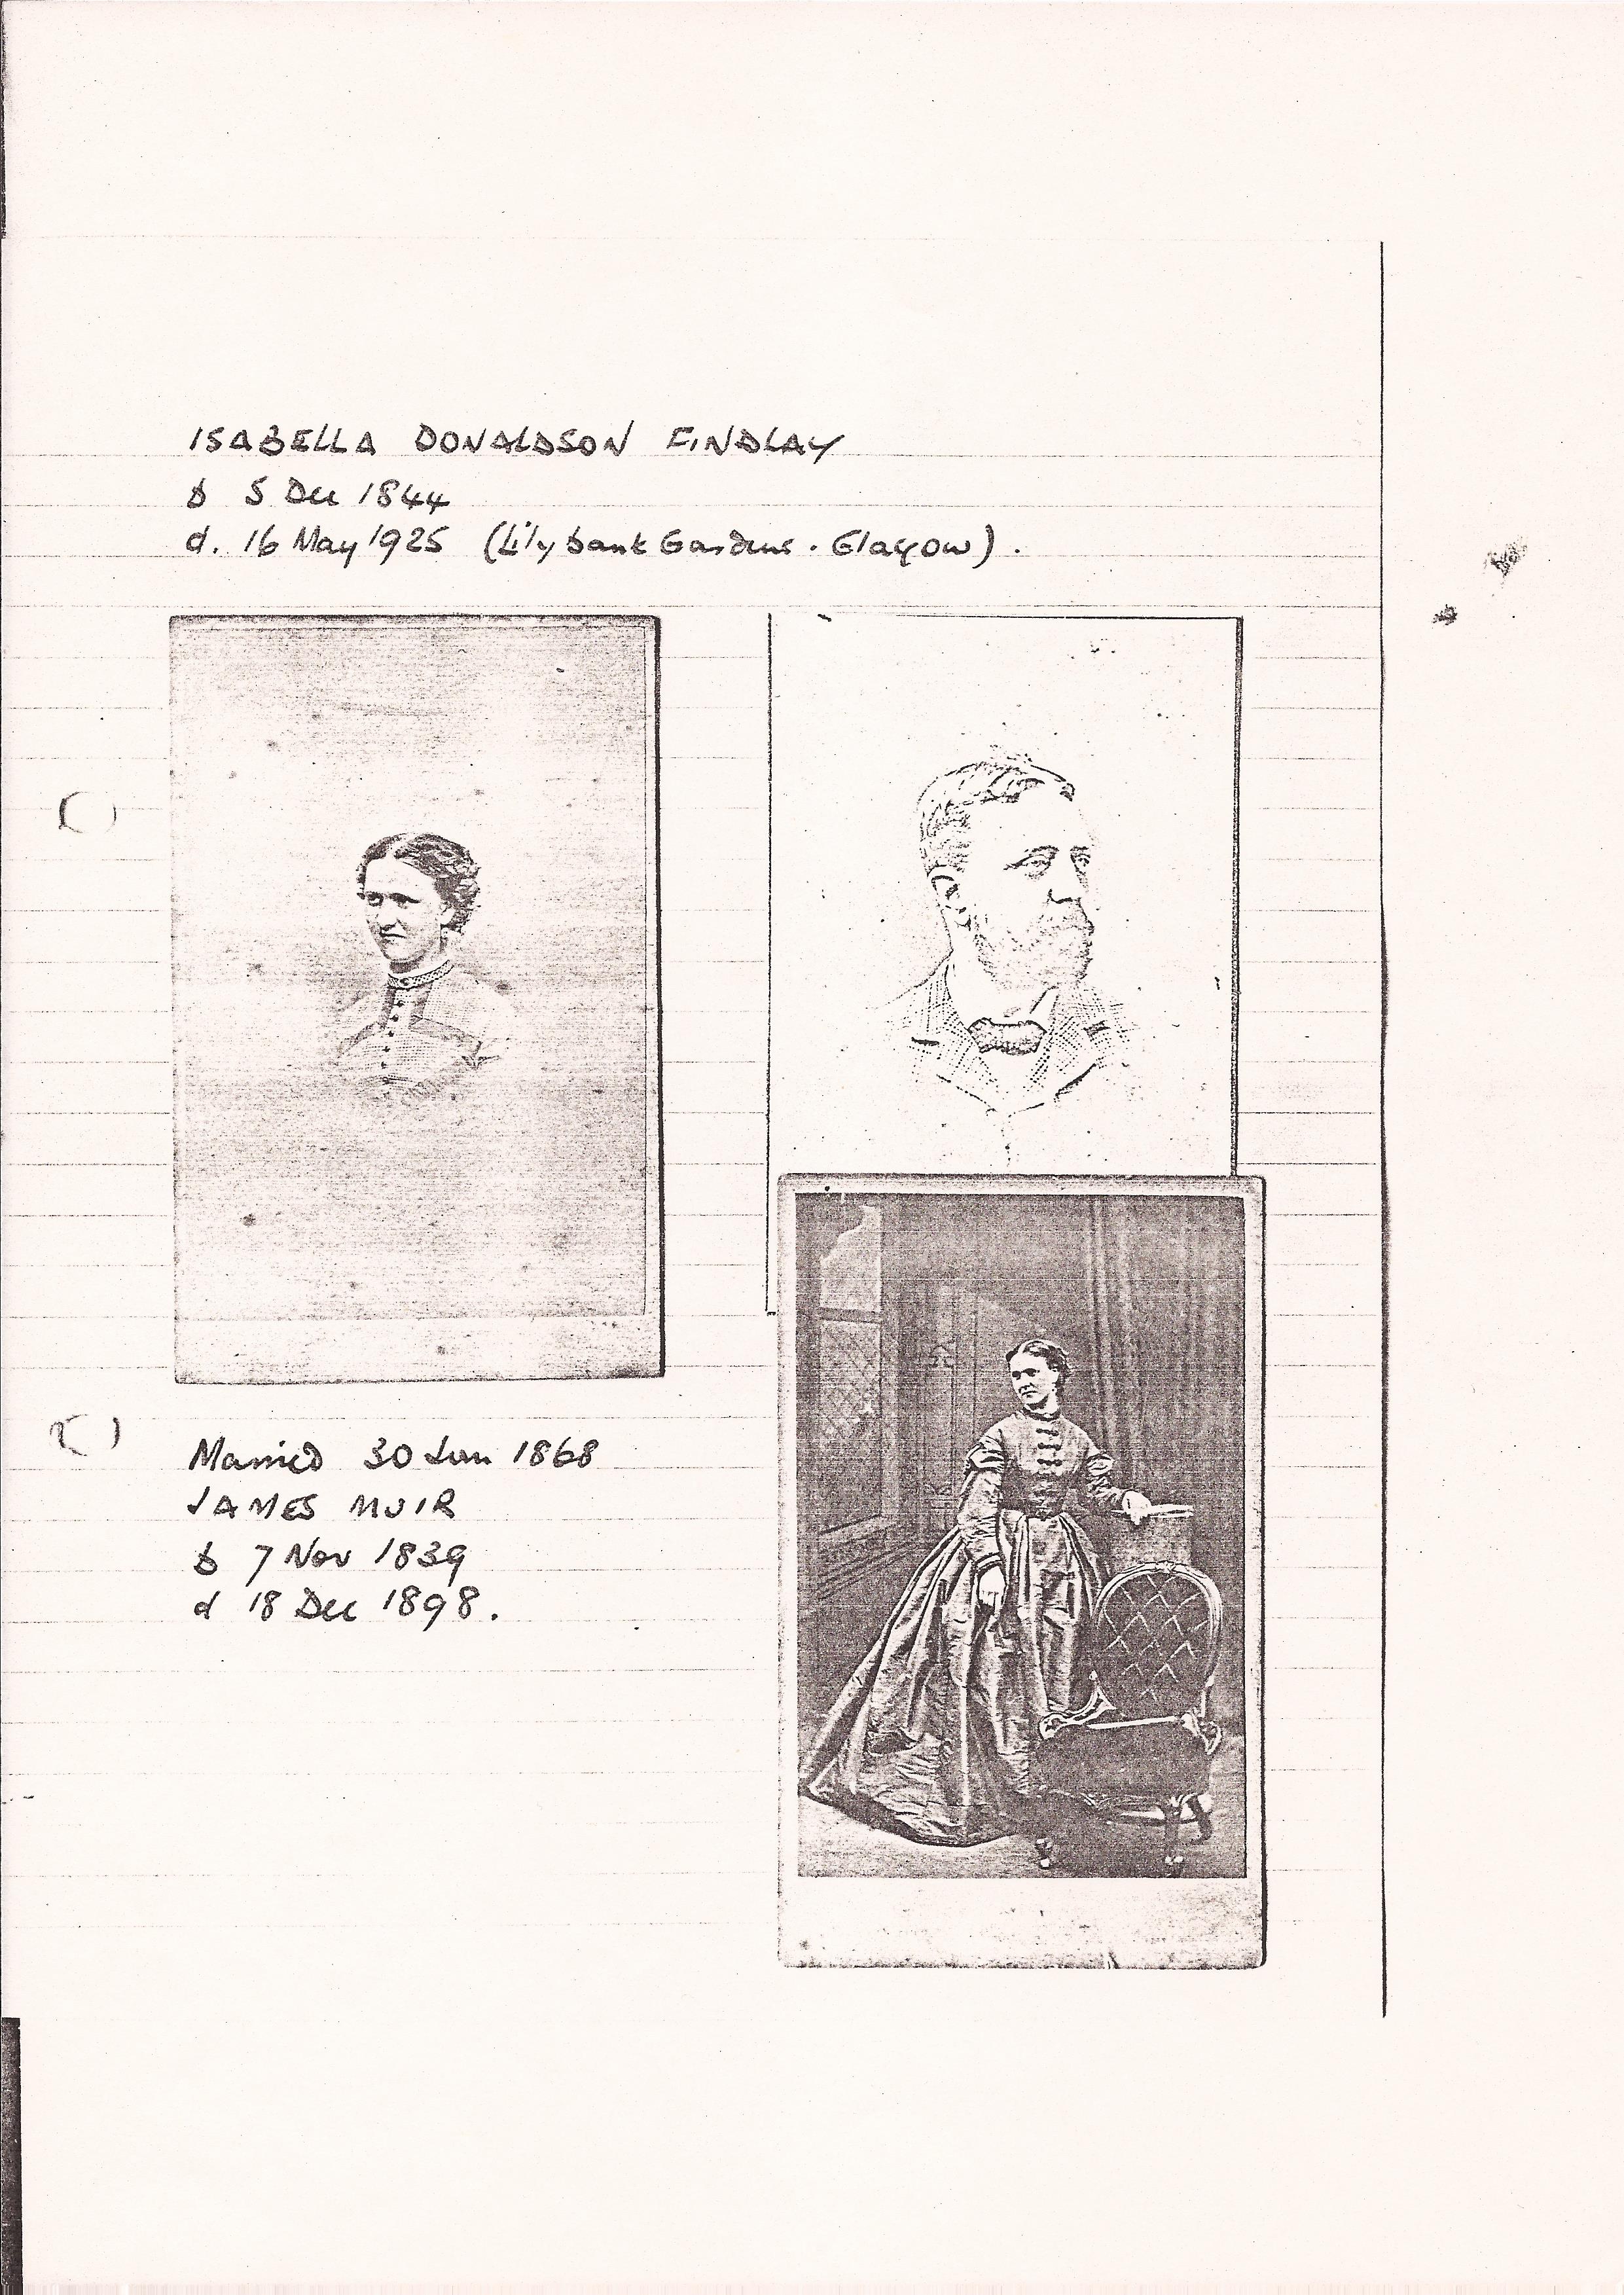 ISABELLA DONALDSON FINDLAY
b 5 Dec 1844
d. 16 May 1925 (Lilybank Gardens. Glasgow).
Married 30 Jun 1868
JAMES MUIR
b 7 Nov 1839
d 18 Dec 1898.